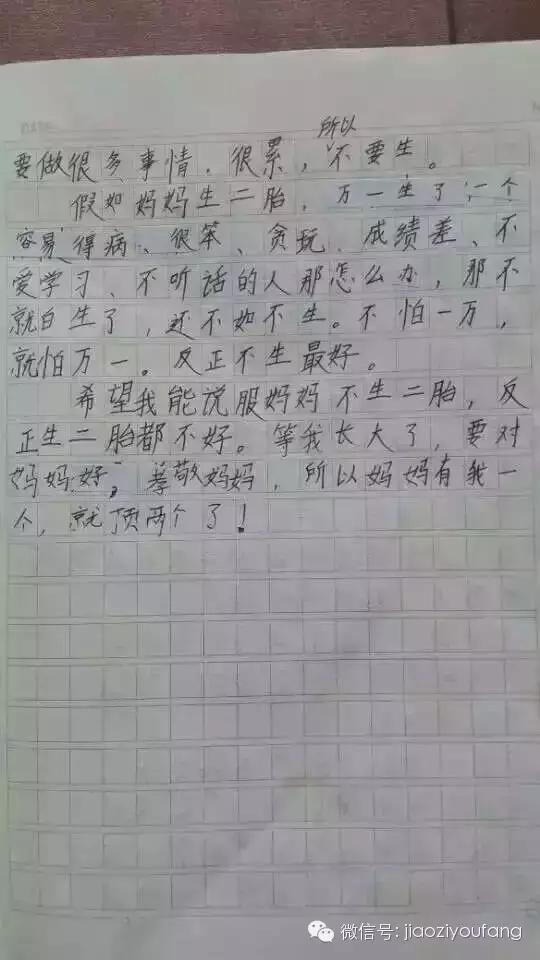 所以
要做很多事情，很累，不要生。
假如妈妈生二胎，万一生了一个
容易得病、很笨、贪玩、成绩差、不
爱学习、不听话的人那怎么办，那不
就白生了，还不如不生。不怕一万，
就怕万一。反正不生最好。
希望我能说服妈妈不生二胎，反
正生二胎都不好。等我长大了，要对
妈妈好，尊敬妈妈，所以妈妈有我一
个，就顶两个了！
微信号: jiaoziyoufang